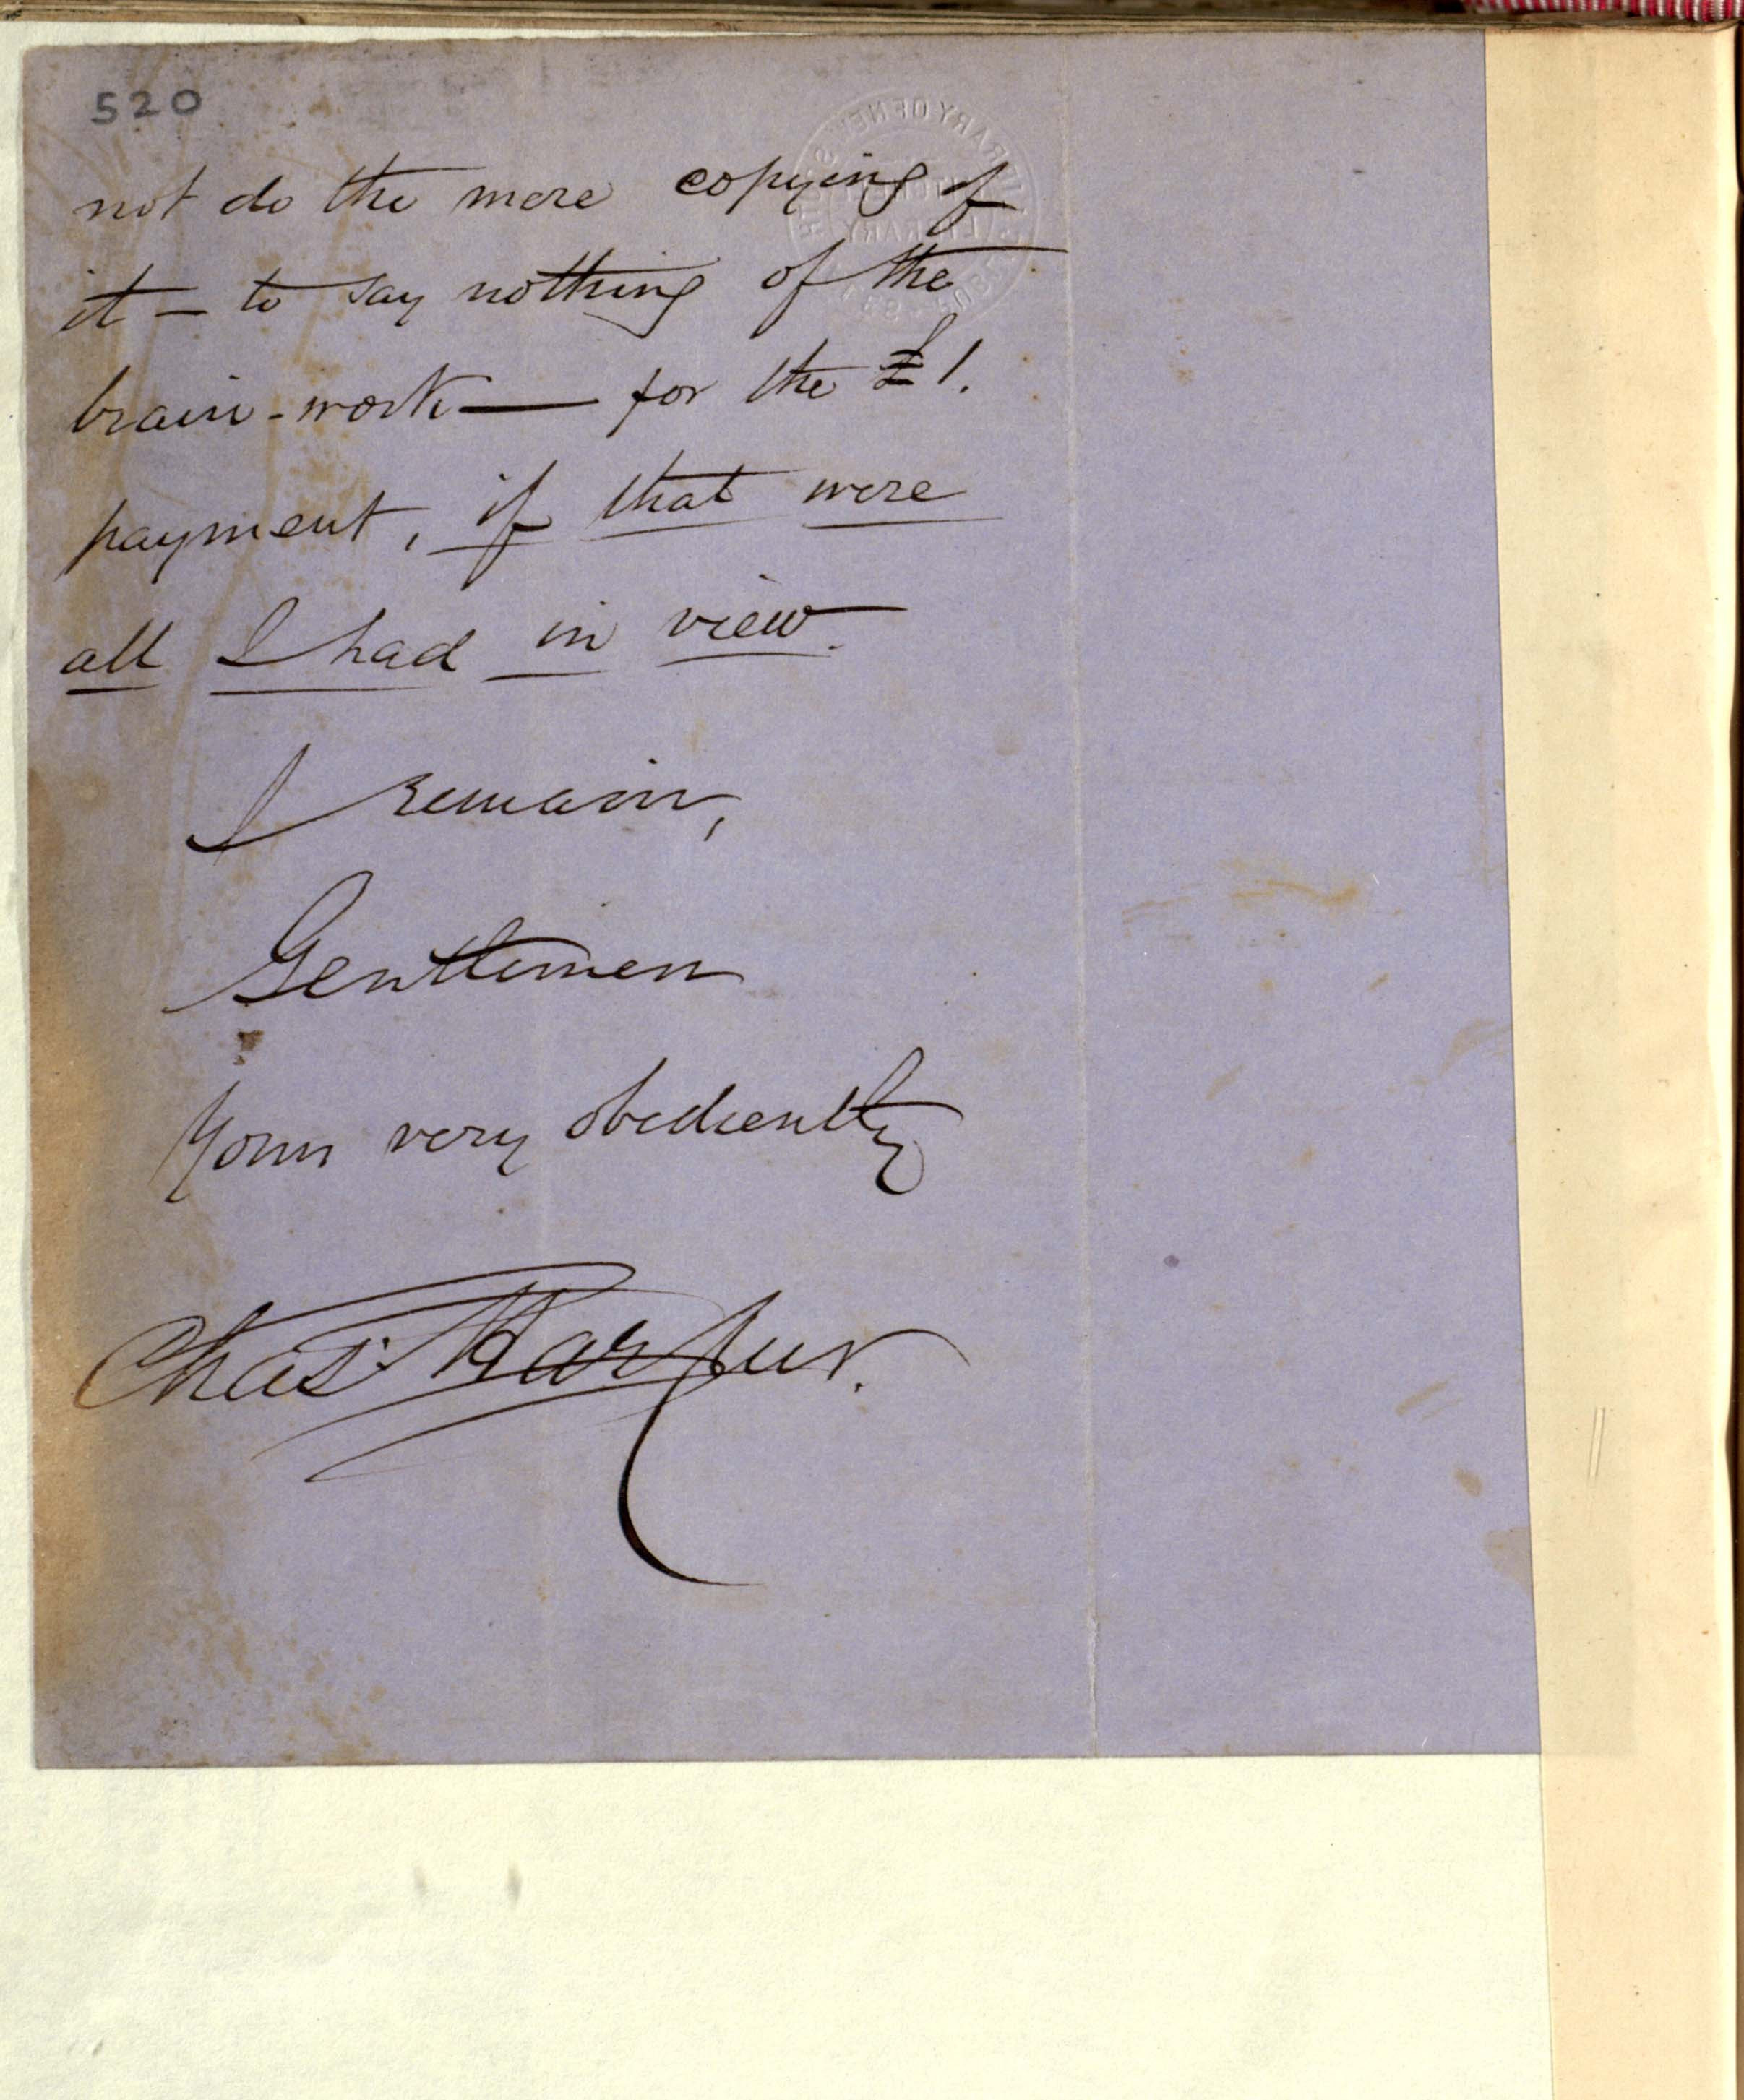 520
not do the mere copying of
it — to say nothing of the
brain-work — for the £1.
payment, if that were
all I had in view.
I remain,
Gentlemen
Yours very obediently
Chas. Harpur.